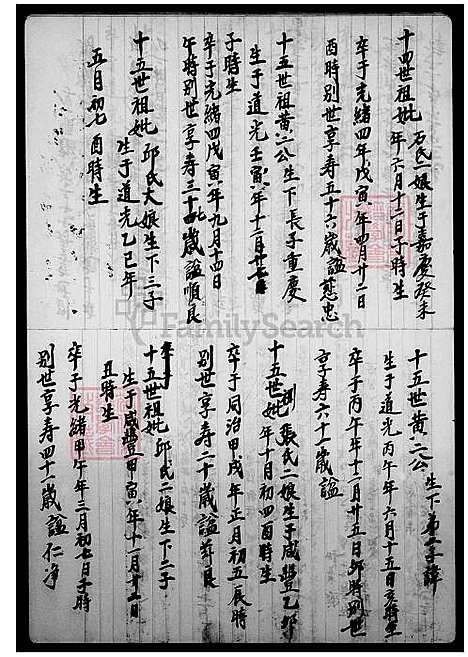 十四世祖妣 石氏一娘生于嘉慶癸未
年六月十二日子時生
卒于光緒四年戊寅年四月廿二日
酉時別世享寿五十六歲諡慈忠
十五世祖黃二公生下長子重慶
生于道光壬寅年十二月廿七日
子時生
卒于光緒四戊寅年九月十四日
午時別世享寿三十七歲諡順良
十五世祖妣 邱氏大娘生下三子
生于道光乙巳年
五月初七酉時生
十五世黃二公 生下第二子諱
生于道光丙午年六月十五日亥時生
卒于丙午年十二月廿五日卯時別世
享寿六十一歲諡
十五世妣 張氏二娘生于咸豐乙卯
年十月初四酉時生
卒于同治甲戌年正月初五辰時
別世享寿二十歲諡
十五世祖妣 邱氏二娘生下二子
生于咸豐甲寅年十一月廿二日
丑時生
卒于光緒甲午年三月初七日子時
別世享寿四十一歲諡仁淨
FamilySearch